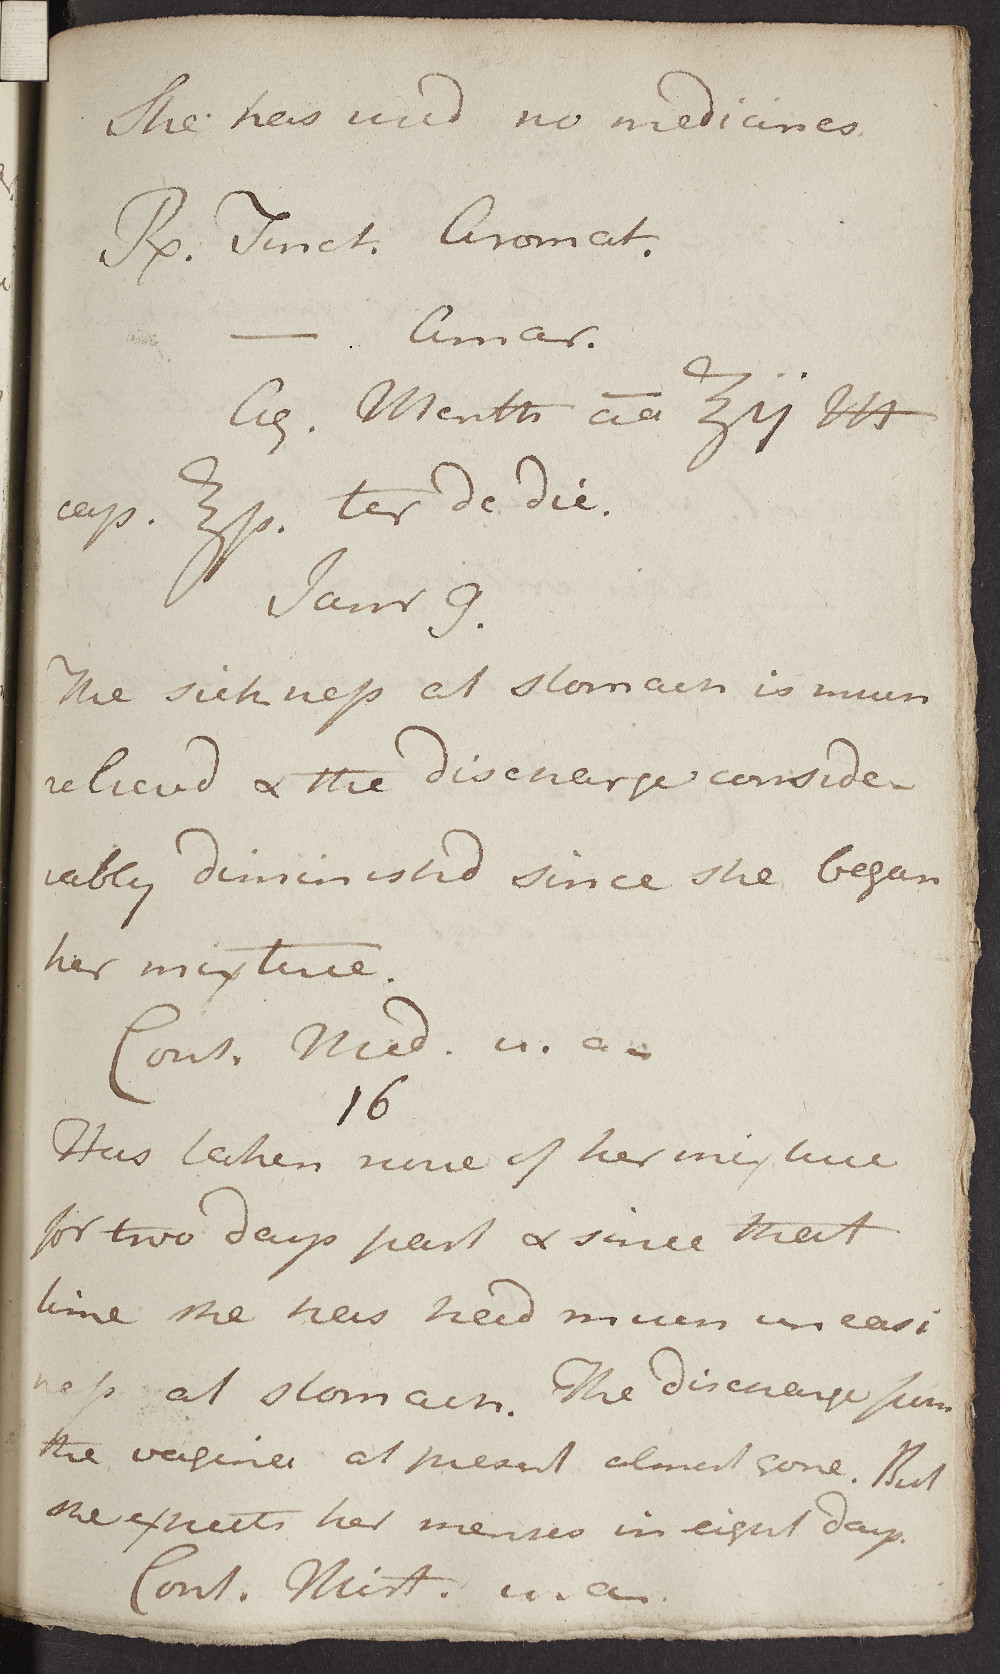 She has used no medicines
Rx. Tinct. Aromat.
— Amar.
Aq. Menth āā ℥ij M
cap. ℥ſs. ter de die.
Janr 9.
The sickneſs at stomach is much
relievd & the discharge conside-
rably diminishd since she began
her mixture.
Cont. Med. u. a.
16
Has taken none of her mixture
for two days past & since that
time she has had much uneasi
neſs at stomach. The discharge from
the vagina at present almost gone. But
she expects her menses in eight days.
Cont. Mist. u. a.